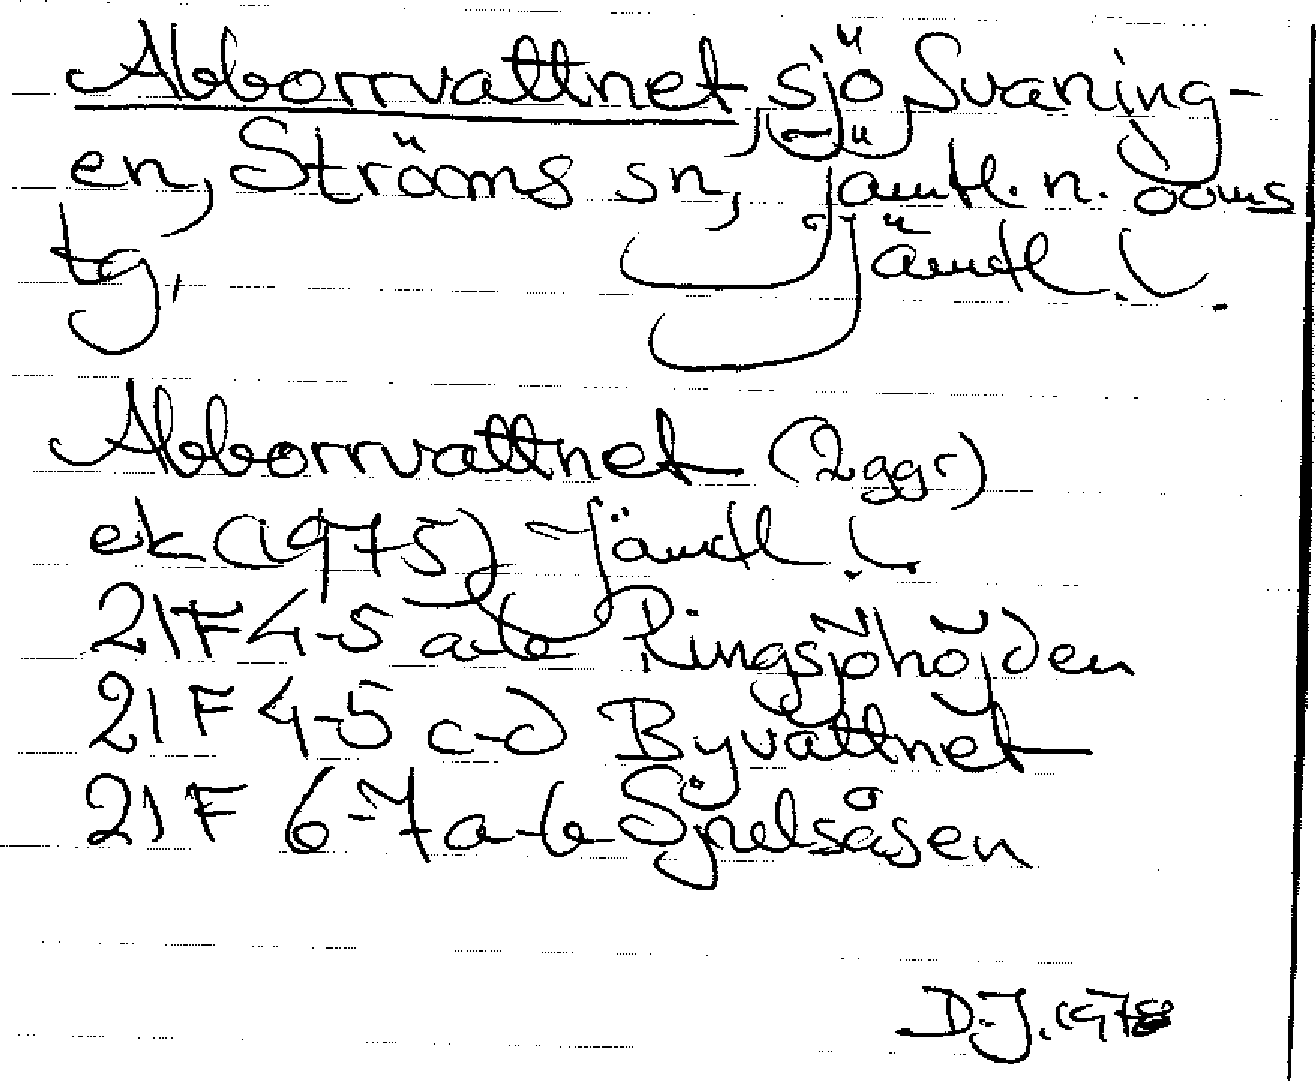 Abborrvattnet, sjö, Svaning-
en, Ströms sn, Jämtl. n. doms
tg, Jämtl. l.
Abborrvattnet (2 ggr)
ek (1975) Jämtl l.
21F 4-5 a-b Ringsjöhöjden
21F 4-5 c-d Byvattnet
21F 6-7 a-b Sjnelsåsen
D.J. 1978